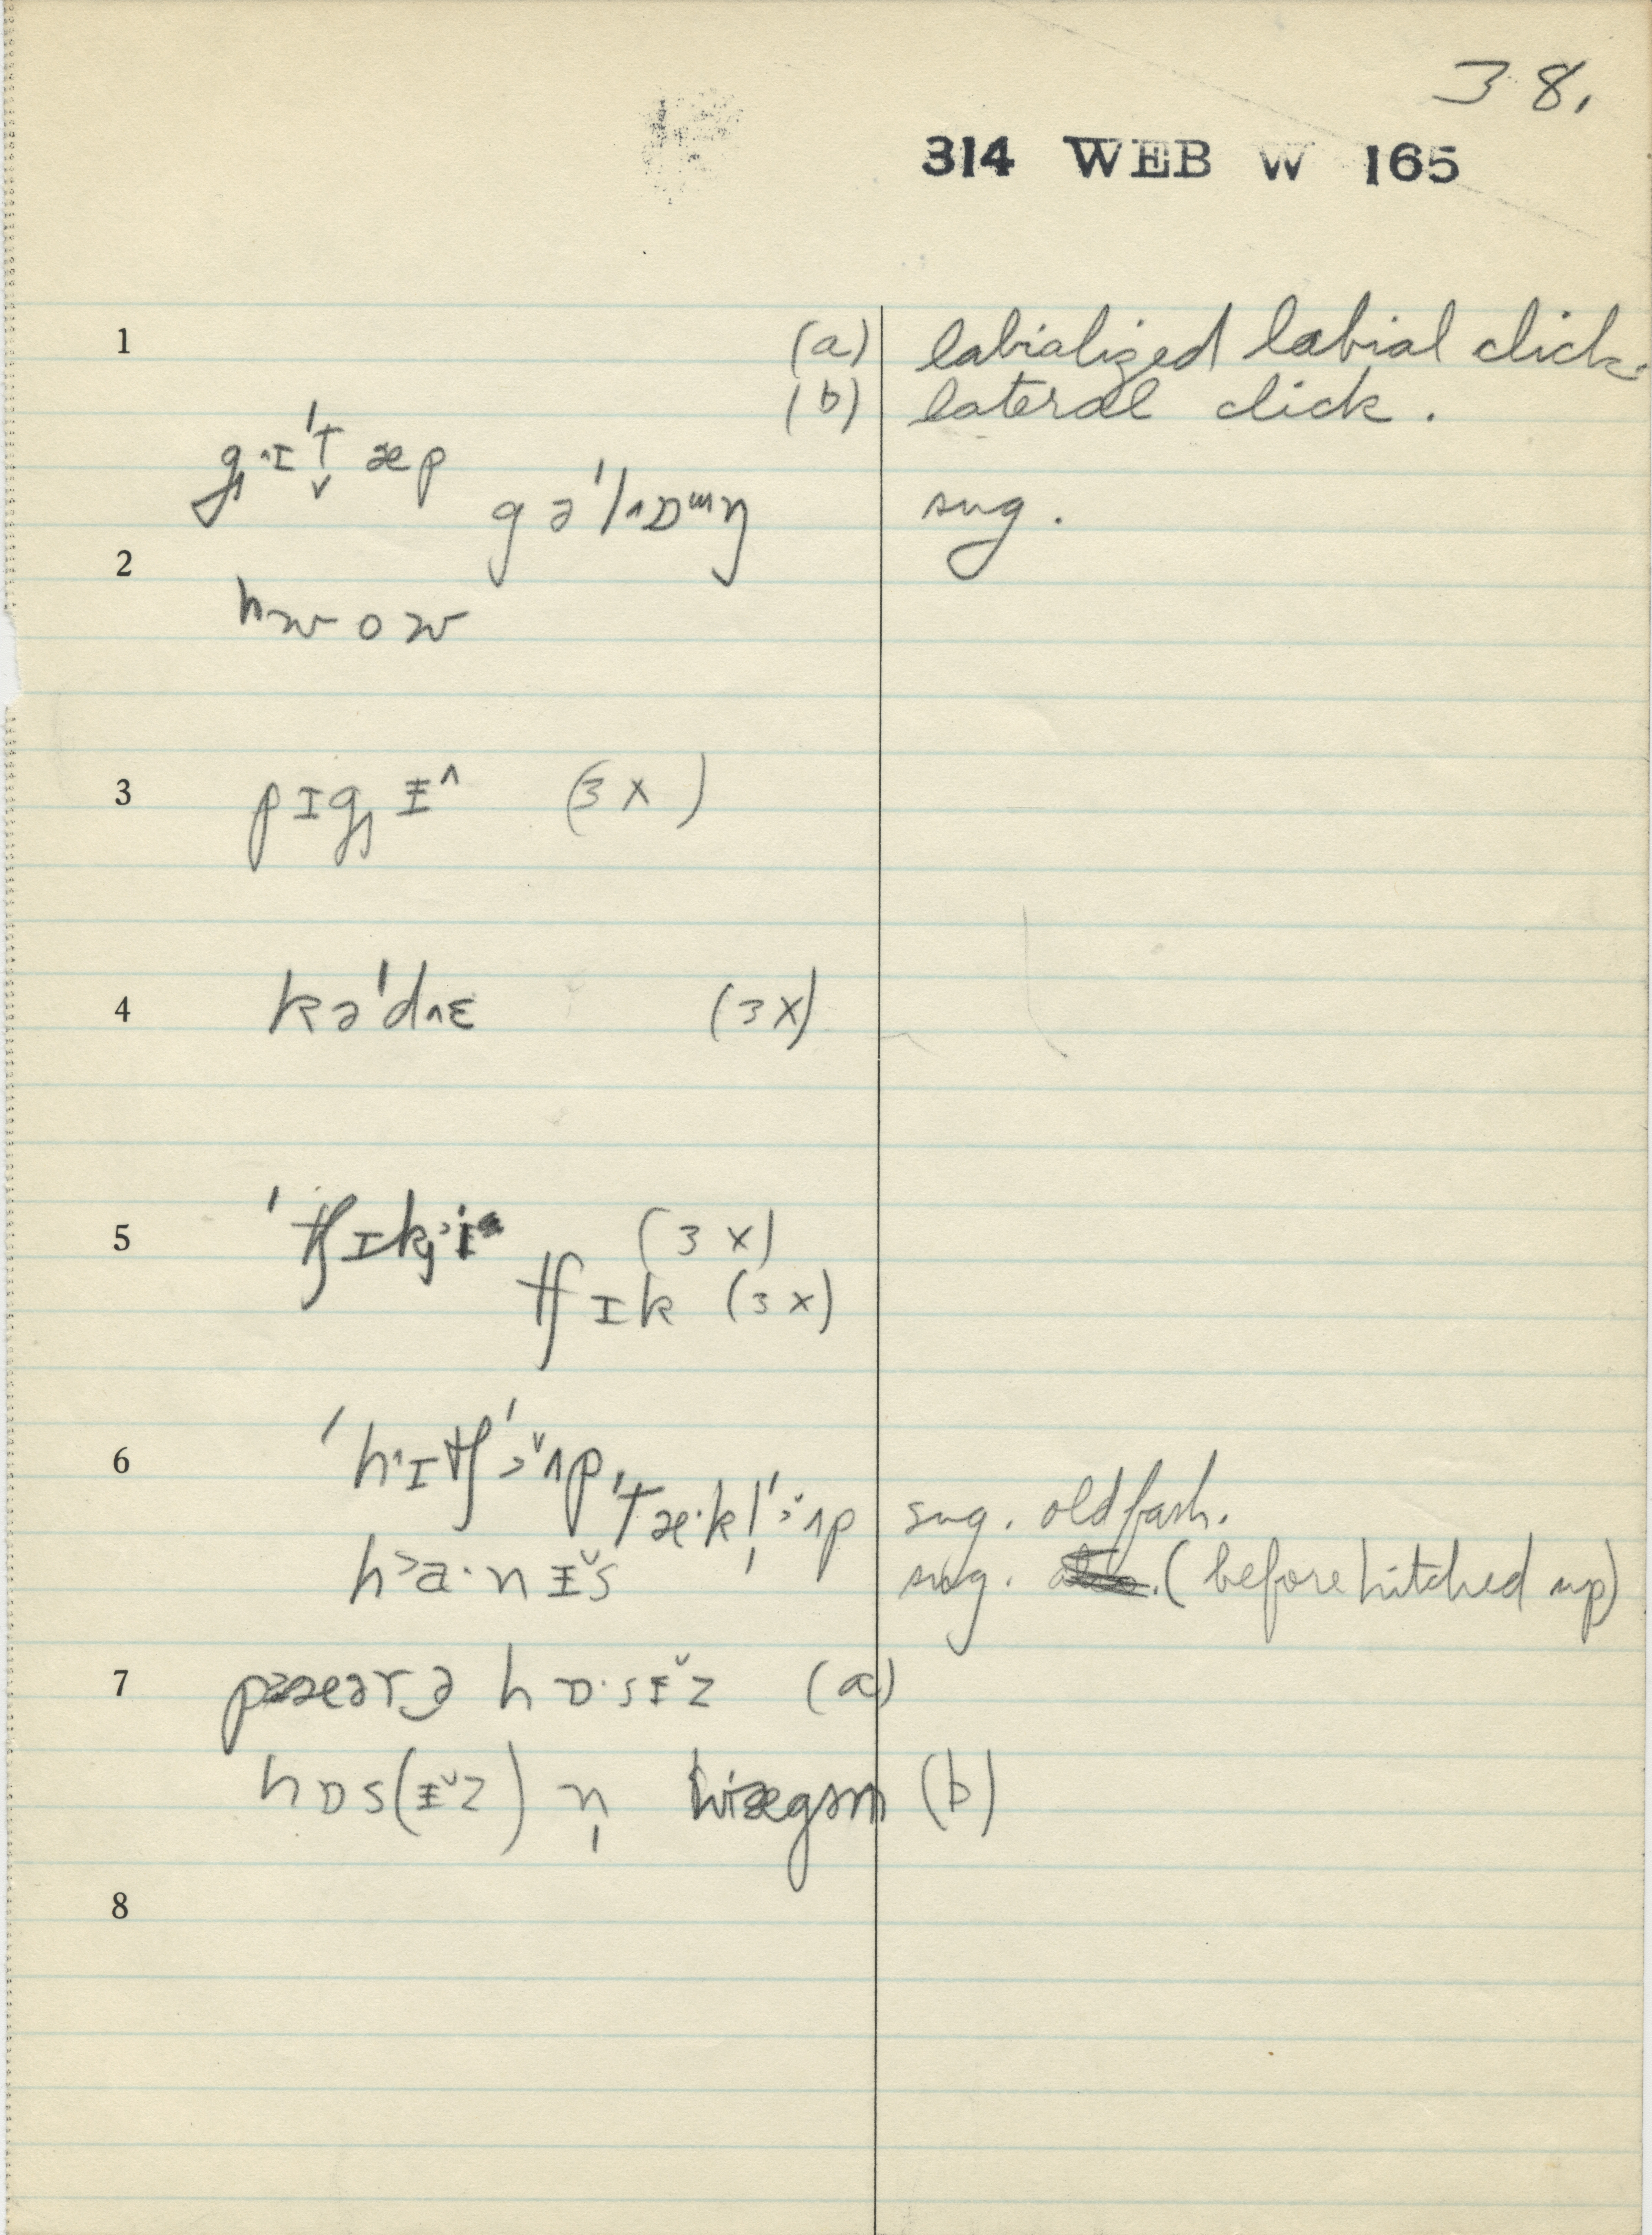 38.
314 WEB W 165
1 (a) labialized labial click.
(b) lateral click.
gɪ'tæp
gə'lɒŋ sug.
2
hwow
3 pɪgɨ^ (3x)
4 kə'dɛ (3x)
5 'tʃɪkɨ (3x)
tʃɪk (3x)
6 'hɪtʃ'ʌp,
'tæ·kl̩'ʌp sug. old fash.
ha·nɨ̆s sug. (before hitched up)
7 hɒ·sɨ̆z (a)
hɒs(ɨ̆z) n̩ (b)
8